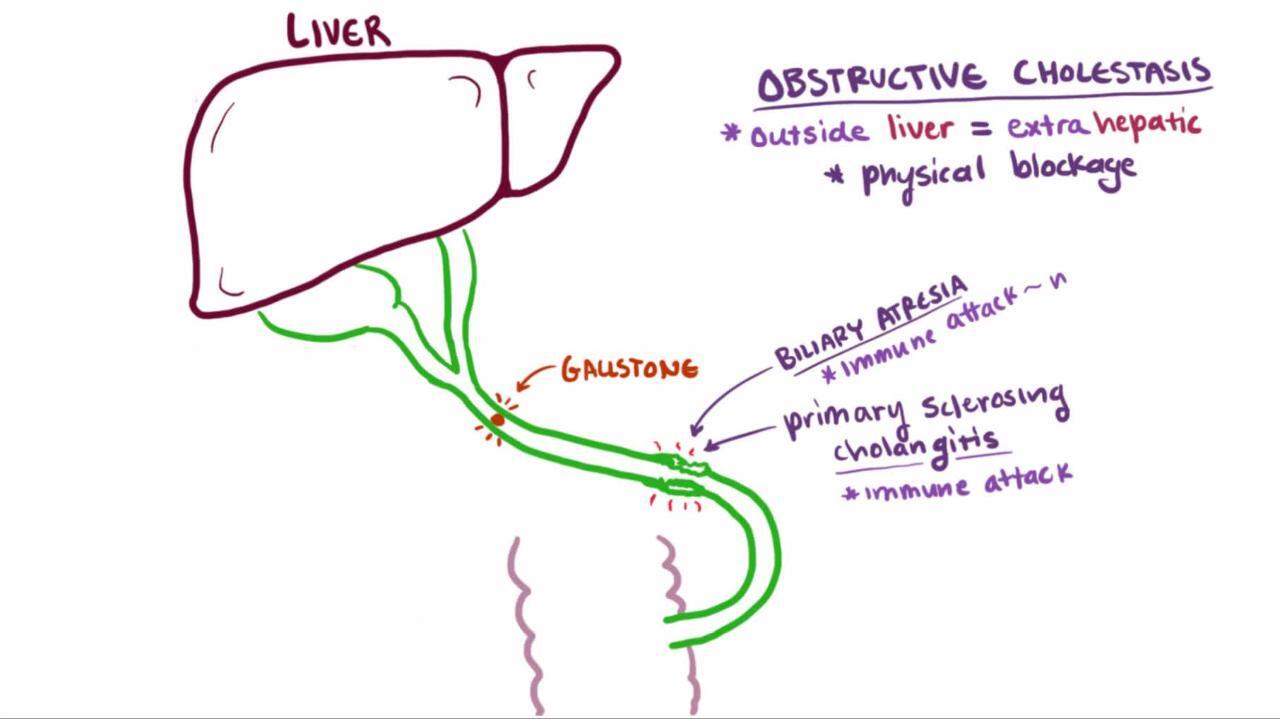 LIVER
OBSTRUCTIVE CHOLESTASIS
* outside liver = extrahepatic
* physical blockage
GALLSTONE
BILIARY ATRESIA
* immune attack ~ n
primary sclerosing
cholangitis
* immune attack